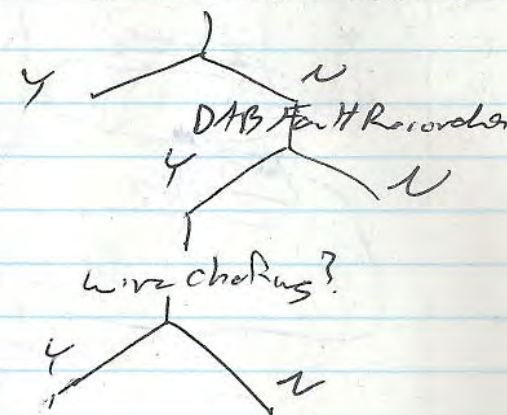 Y N
DAB Fault Recorder
Y N
wire chafing?
Y N